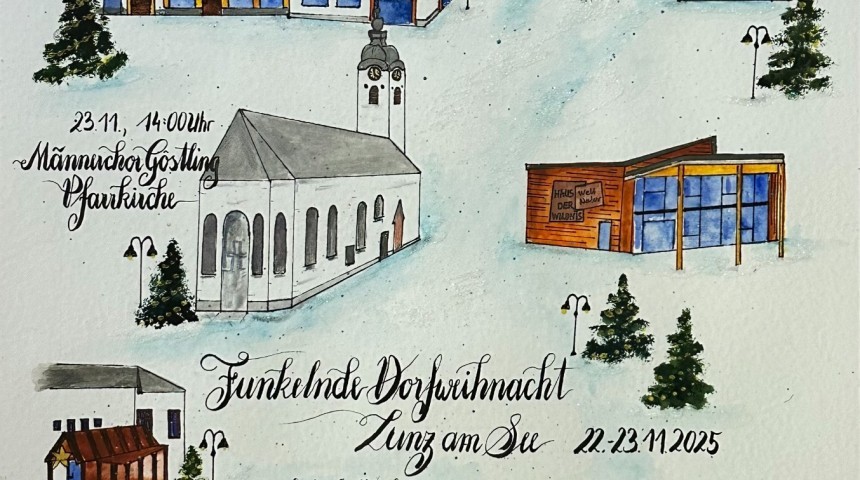 23.11., 14:00 Uhr
Männerchor Göstling
Pfarrkirche
HAUS
DER
WILDNIS
Welt
Natur
Funkelnde Dorfweihnacht
Lunz am See 22.-23.11.2025